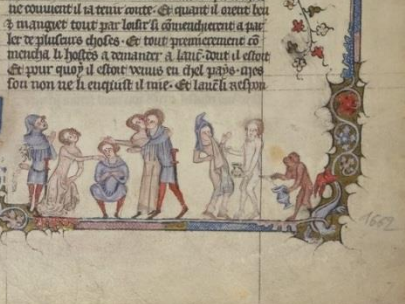 ne couient il ta tenir conte. Et quant il orent beu
& mangiet tout par loisir si cōmenchierent a par
ler de pluseurs choses. Et tout premierement cō
mencha li hostes a demander a lanc̄. dont il estoit
Et pour quoy il estoit venus en chel pays. mes
son non ne li enquist il mie. Et lanc̄ li respon
1662